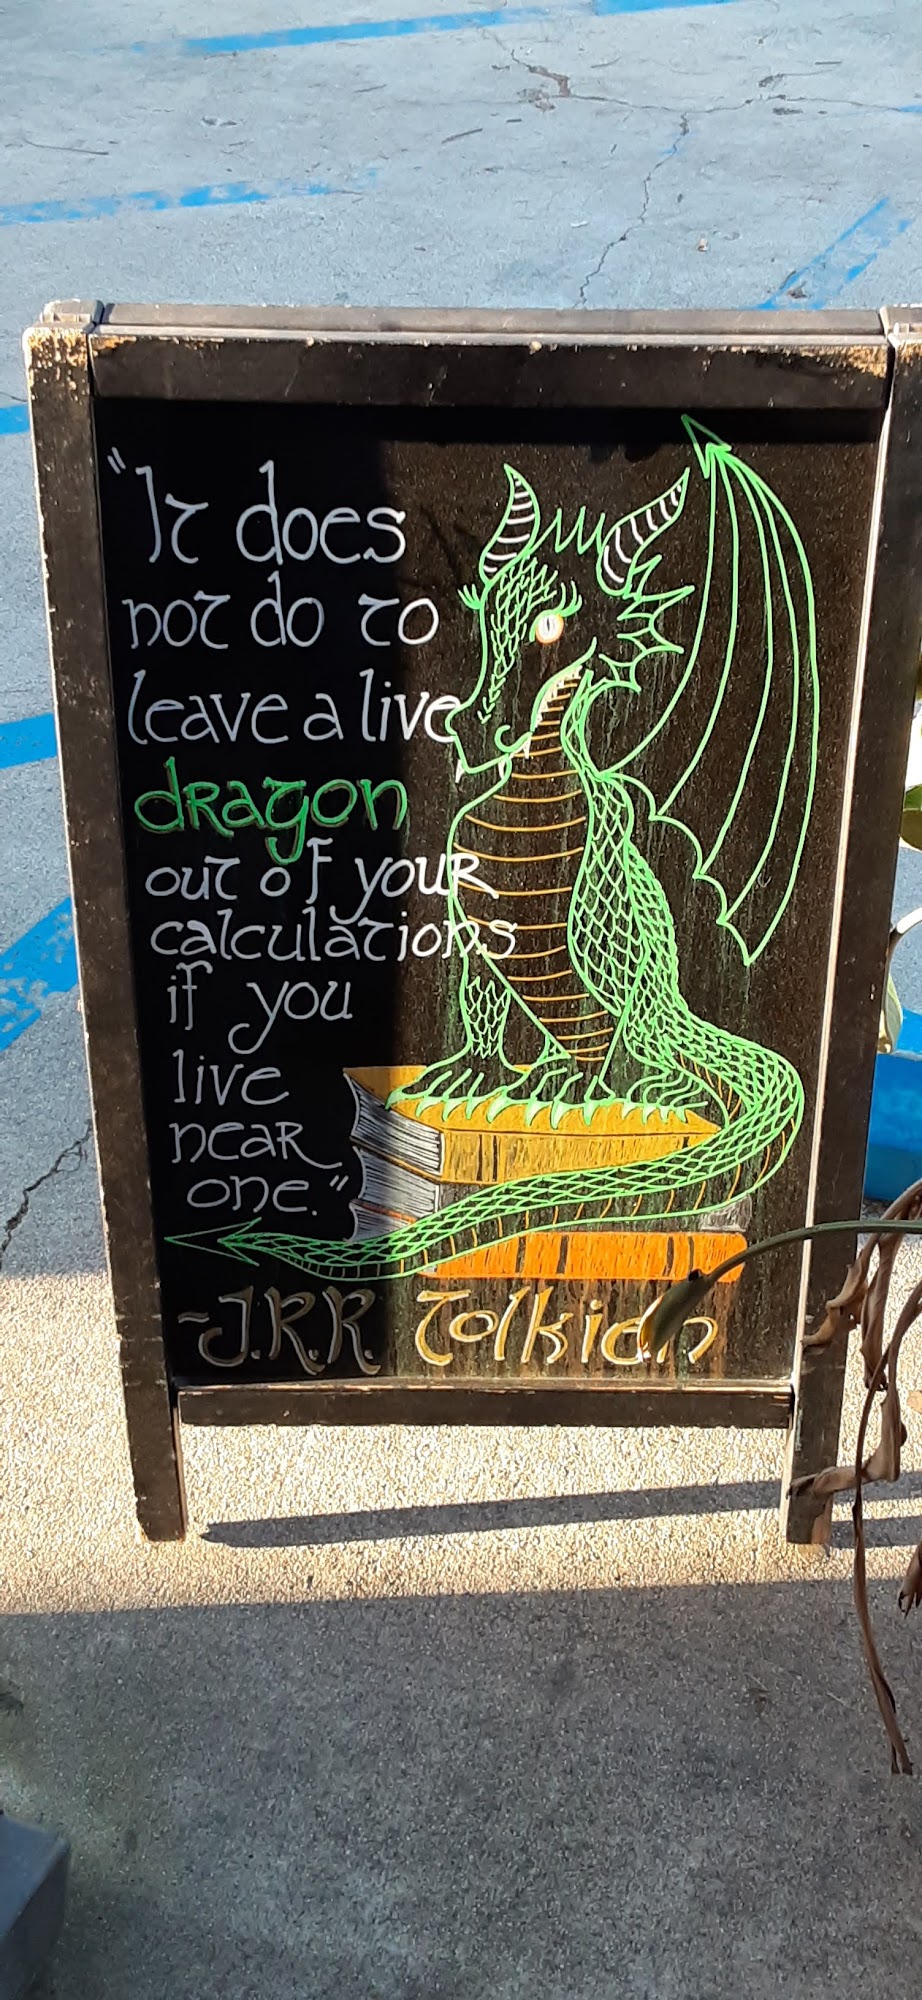 "It does
not do to
leave a live
dragon
out of your
calculations
if you
live
near
one."
~J.R.R. Tolkien